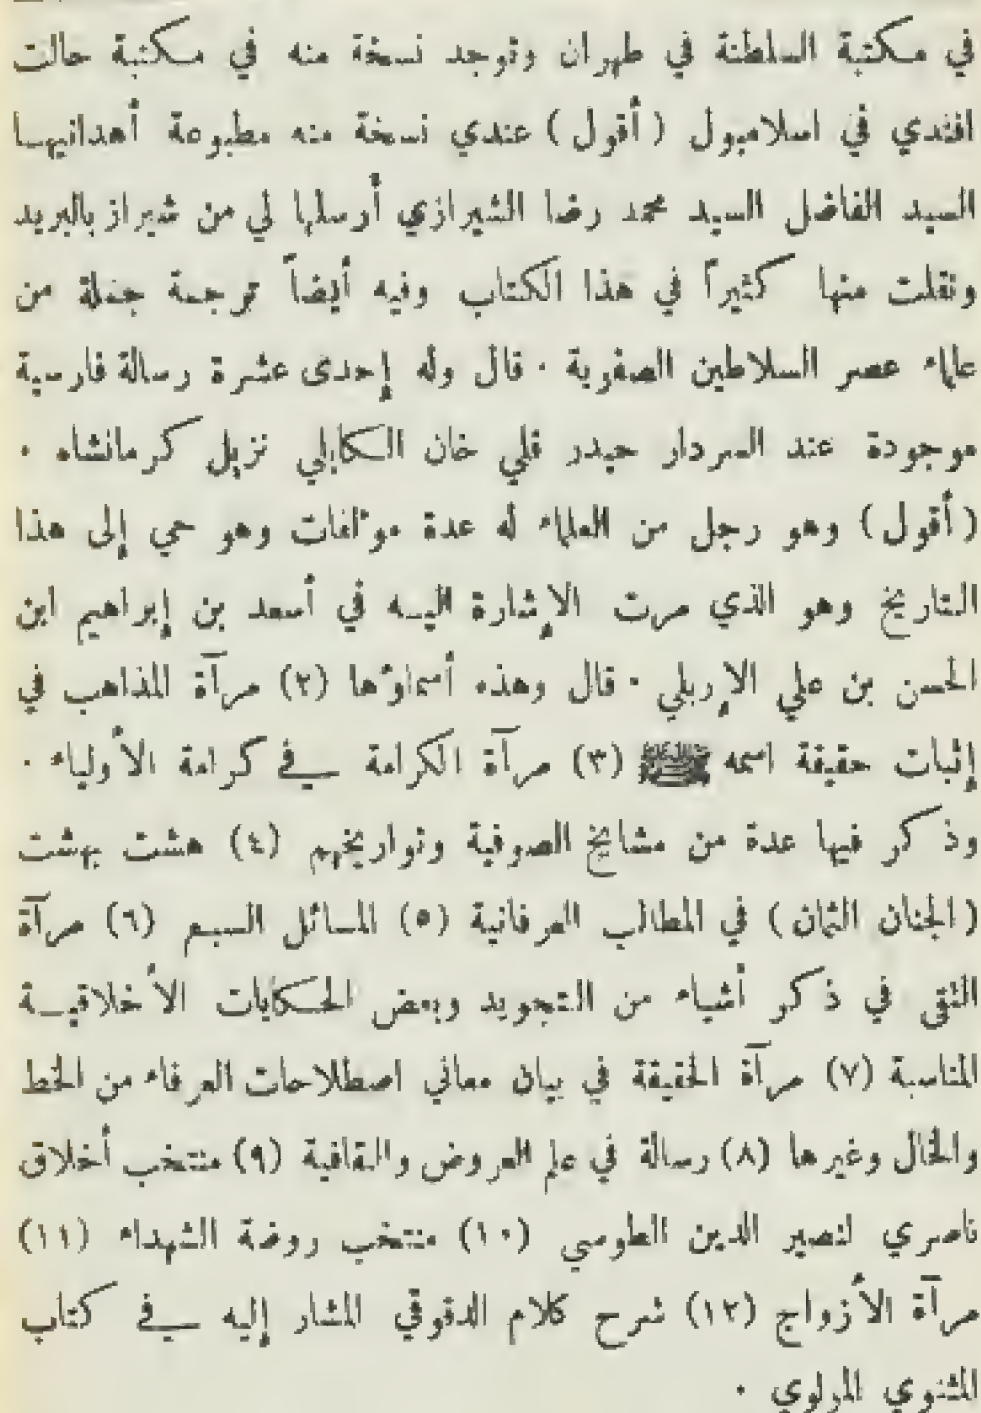 في مكتبة السلطنة في طهران وتوجد نسخة منه في مكتبة حالت
افندي في اسلامبول (أقول) عندي نسخة منه مطبوعة أهدانيها
السيد الفاضل السيد محمد رضا الشيرازي أرسلها لي من شيراز بالبريد
ونقلت منها كثيراً في هذا الكتاب وفيه أيضاً ترجمة جملة من
علماء عصر السلاطين الصفوية . قال وله إحدى عشرة رسالة فارسية
موجودة عند السردار حيدر قلي خان الكابلي نزيل كرمانشاه .
(أقول) وهو رجل من العلماء له عدة مؤلفات وهو حي إلى هذا
التاريخ وهو الذي مرت الإشارة اليه في أسعد بن إبراهيم ابن
الحسن بن علي الإربلي . قال وهذه أسماؤها (٢) مرآة المذاهب في
إثبات حقيقة اسمه ﷺ (٣) مرآة الكرامة في كرامة الأولياء .
وذكر فيها عدة من مشايخ الصوفية وتواريخهم (٤) هشت بهشت
(الجنان الثمان) في المطالب العرفانية (٥) المسائل السبع (٦) مرآة
التقى في ذكر أشياء من التجويد وبعض الحكايات الأخلاقية
المناسبة (٧) مرآة الحقيقة في بيان معاني اصطلاحات العرفاء من الخط
والخال وغيرها (٨) رسالة في علم العروض والقافية (٩) منتخب أخلاق
ناصري لنصير الدين الطوسي (١٠) منتخب روضة الشهداء (١١)
مرآة الأزواج (١٢) شرح كلام الدقوقي المشار إليه في كتاب
المثنوي المولوي .